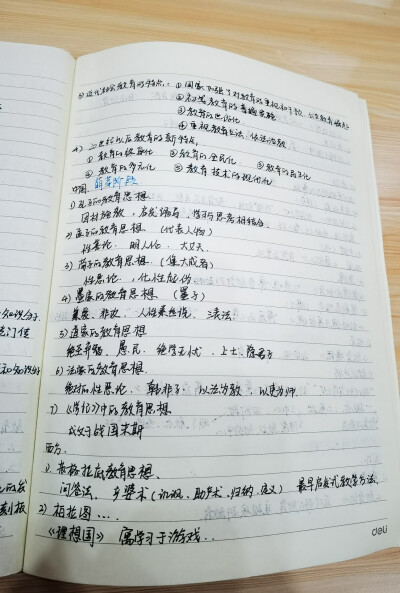 3) 近代社会教育的特点：① 国家加强了对教育的重视和干预，公立教育崛起
② 初等教育的普遍实施
③ 教育的世俗化
④ 重视教育立法，依法治教
4) 20世纪以后教育的新特点：
① 教育的终身化 ② 教育的全民化 ③ 教育的民主化
④ 教育的多元化 ⑤ 教育技术的现代化
中国：萌芽阶段
1) 孔子的教育思想
因材施教，启发诱导，学与思考相结合。
2) 孟子的教育思想 (代表人物)
性善论，明人伦，大丈夫
3) 荀子的教育思想 (集大成者)
性恶论，化性起伪
4) 墨家的教育思想 (墨子)
兼爱、非攻，人性素丝说，三表法
5) 道家的教育思想
绝圣弃智、愚民，绝学无忧，上士
6) 法家的教育思想
绝对的性恶论，韩非子，以法为教，以吏为师
7) 《学记》中的教育思想
成文于战国末期
西方：
1) 苏格拉底教育思想、
问答法、产婆术 (讥讽、助产术、归纳、定义) 最早启发式教学方法、
2) 柏拉图...
《理想国》 寓学习于游戏..
deli